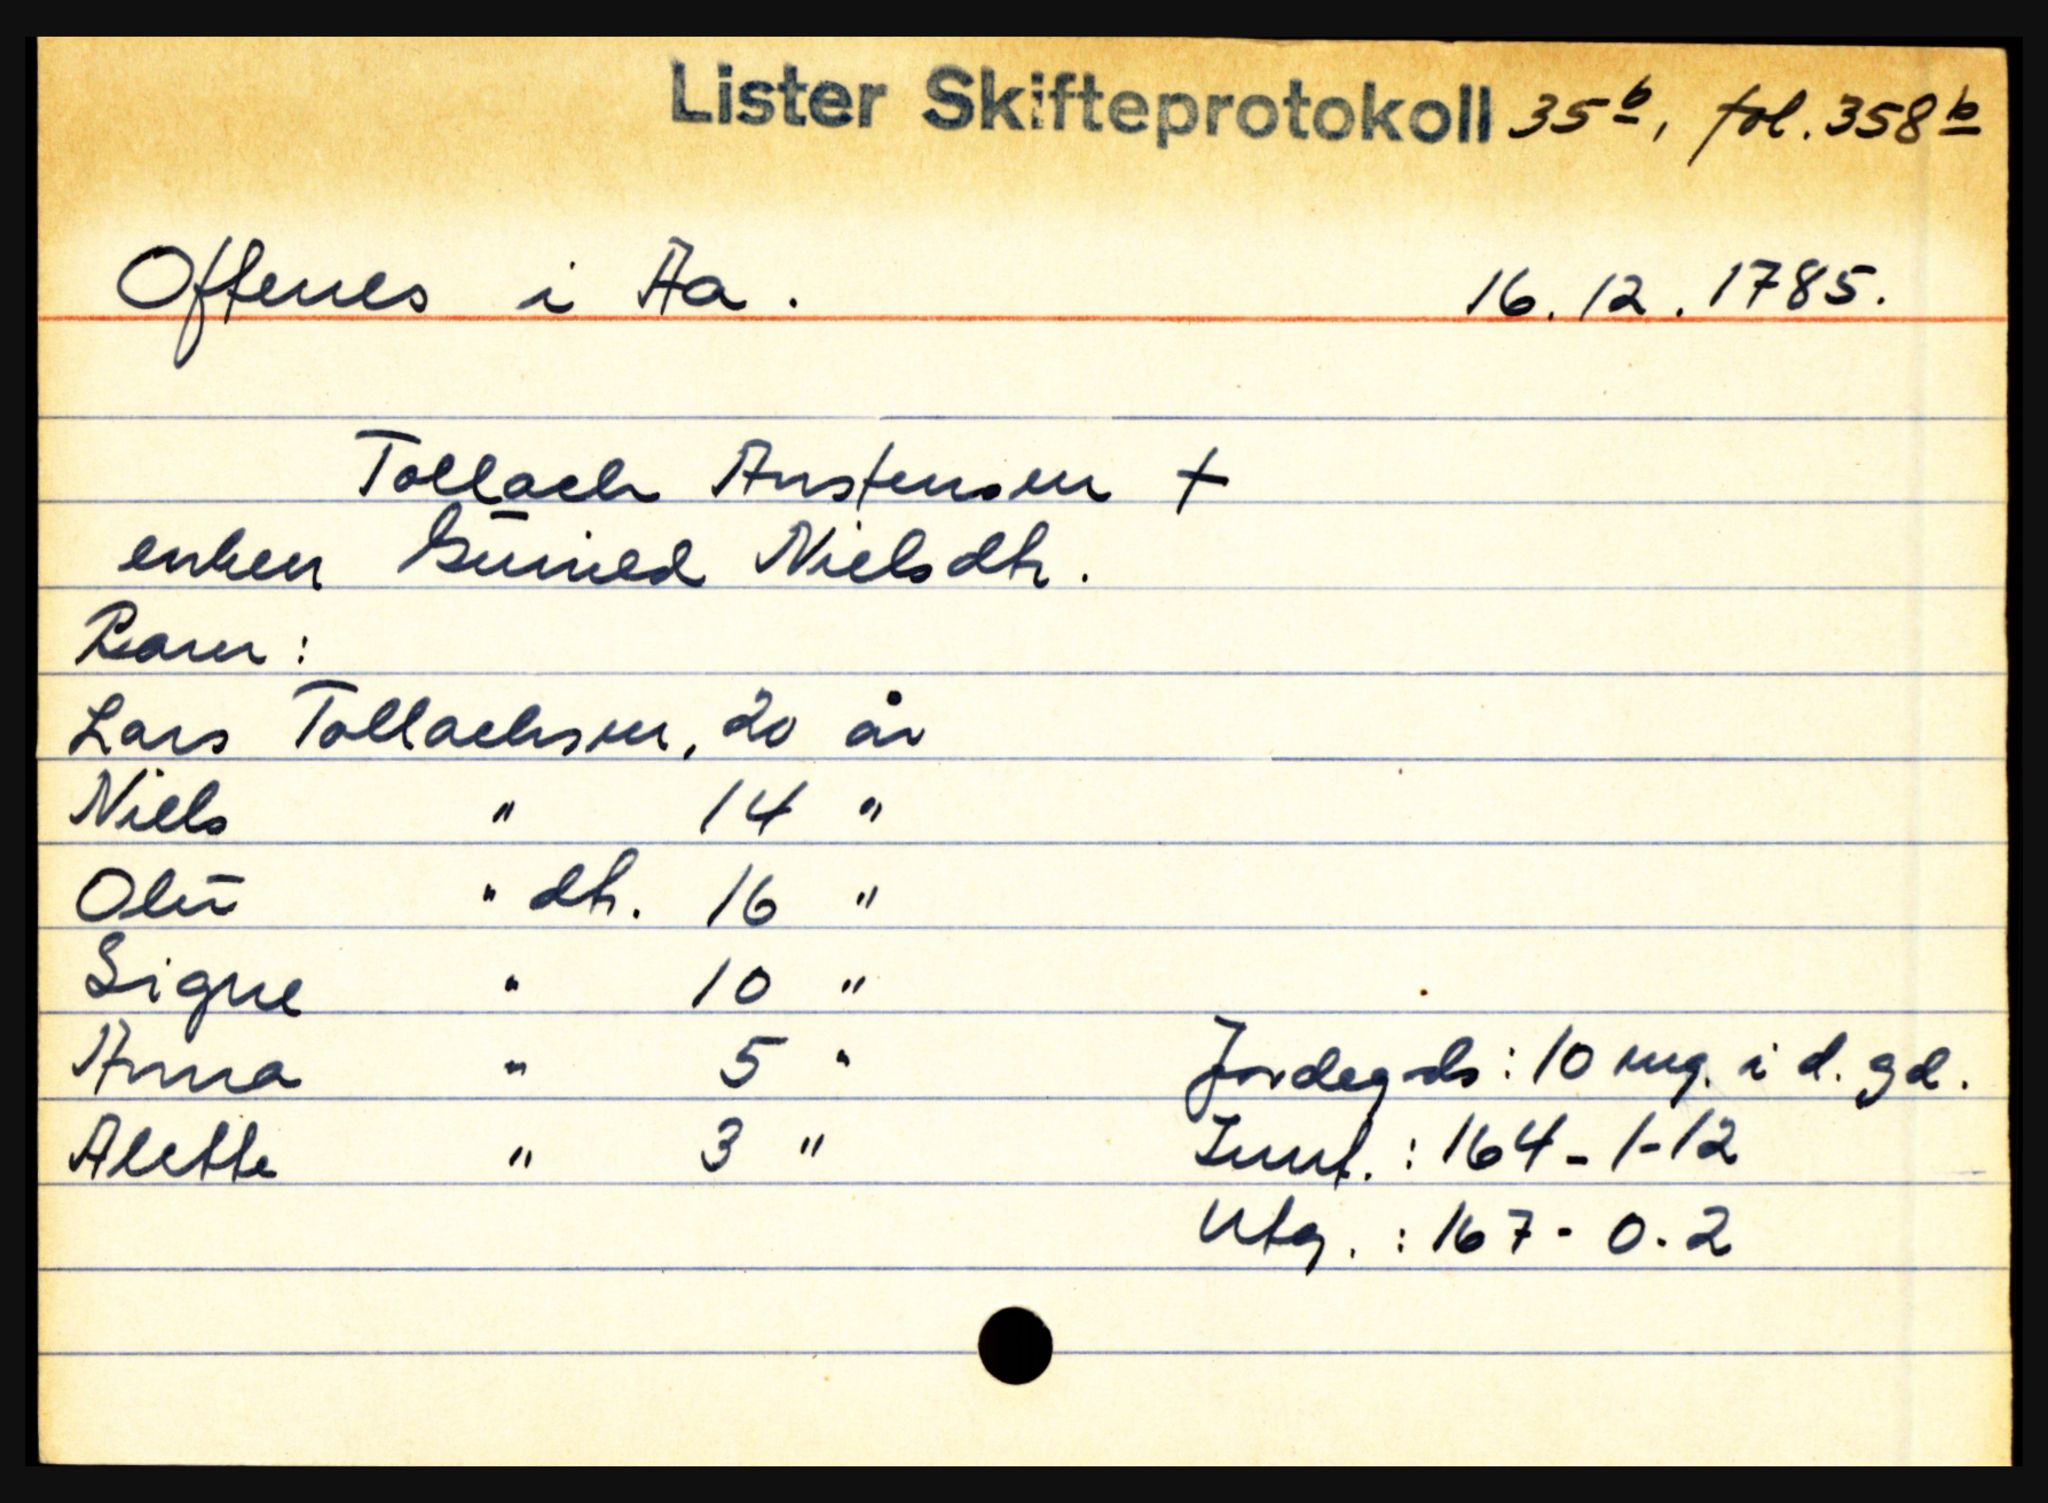 Lister Skifteprotokoll 35b, fol. 358b
Offenes i Aa. 16.12.1785.
Tollach Anstensen +
enken Gunild Nielsdtr.
Barn:
Lars Tollachsen, 20 år
Niels " 14 "
" dtr. 16 "
Signe " 10 "
Anna " 5 "
Alette " 3 "
Jordegods: 10 mg. i d. gd.
Innt.: 164-1-12
Utg.: 167-0-2